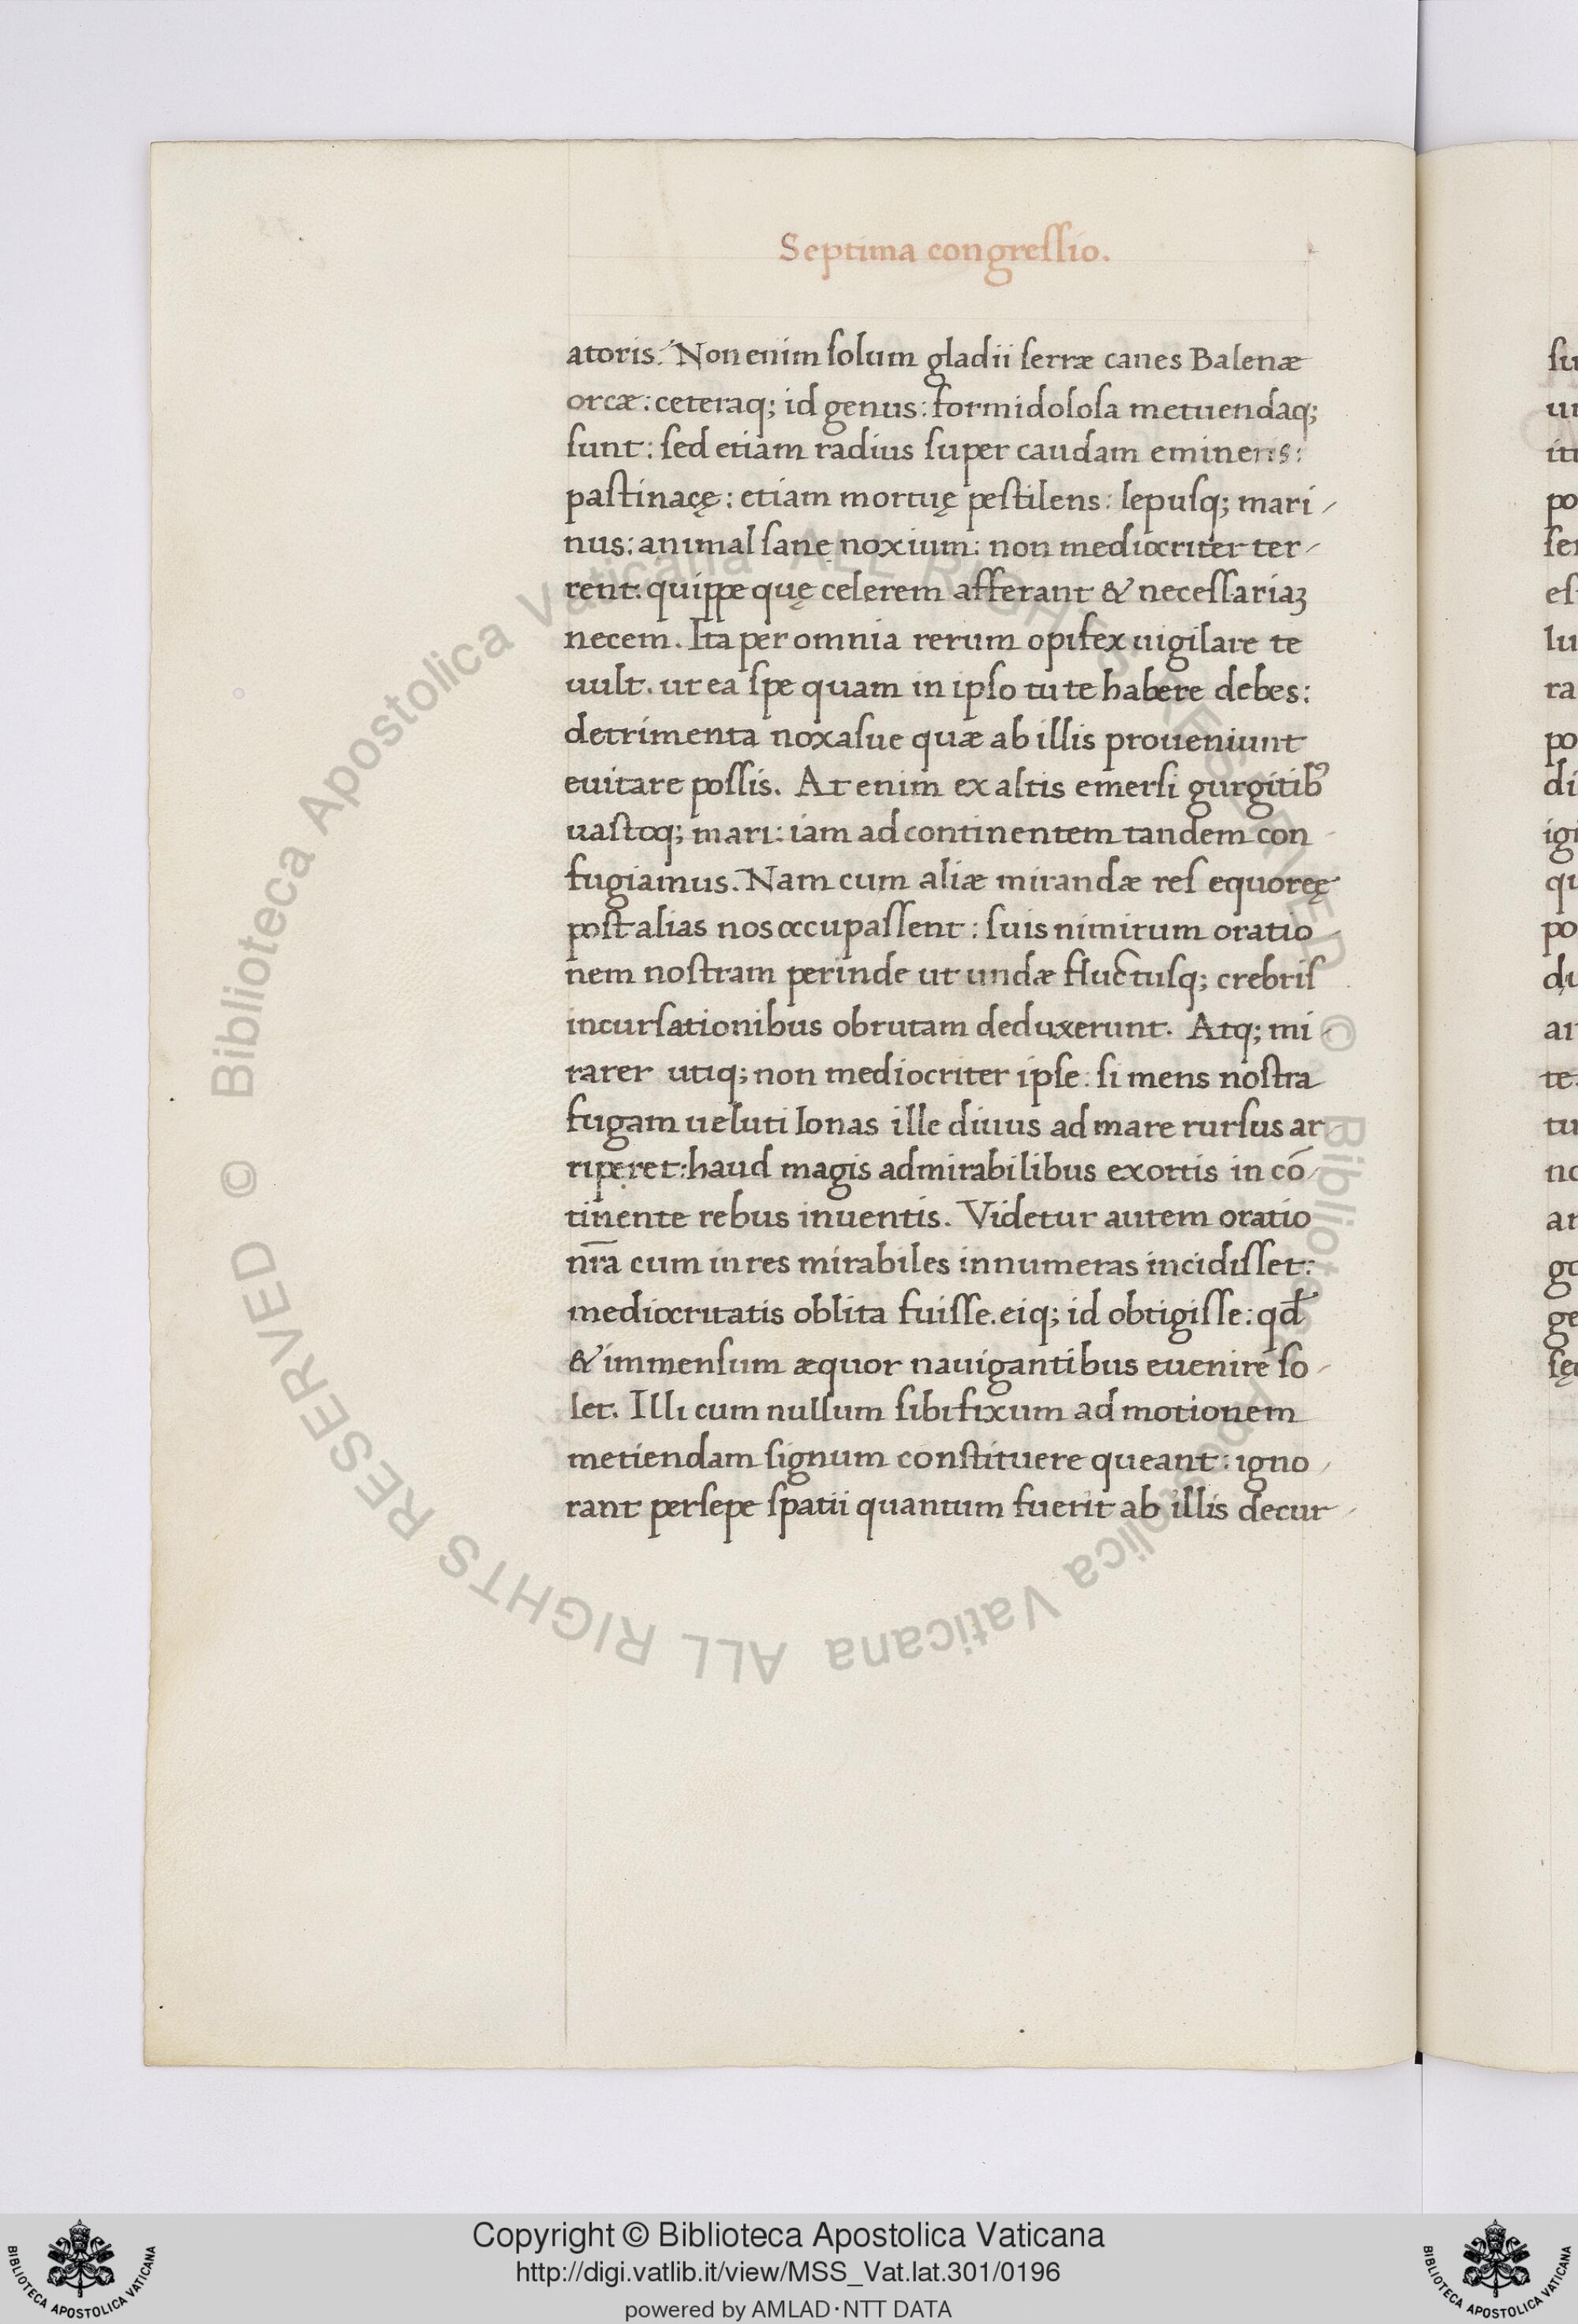 Septima congreſſio.
atoris. Non enim ſolum gladii ſerræ canes Balenæ
orcæ: ceteraq; id genus: formidoloſa metuendaq;
ſunt: ſed etiam radius ſuper caudam eminens:
paſtinacę: etiam mortuę peſtilens: lepuſq; mari-
nus: animal ſane noxium: non mediocriter ter-
rent. quippe quę celerem afferant & neceſſariaꝫ
necem. Ita per omnia rerum opifex uigilare te
uult. ut ea ſpe quam in ipſo tu te habere debes:
detrimenta noxaſue quæ ab illis proueniunt
euitare poſſis. At enim ex altis emerſi gurgitibꝰ
uaſtoq; mari: iam ad continentem tandem con-
fugiamus. Nam cum aliæ mirandæ reſ equoreę
poſt alias nos occupaſſent: ſuis nimirum oratio-
nem noſtram perinde ut undæ fluctuſq; crebriſ
incurſationibus obrutam deduxerunt. Atq; mi-
rarer utiq; non mediocriter ipſe: ſi mens noſtra
fugam ueluti Ionas ille diuus ad mare rurſus ar-
riperet: haud magis admirabilibus exortis in cō-
tinente rebus inuentis. Videtur autem oratio
nr̄a cum in res mirabiles innumeras incidiſſet:
mediocritatis oblita fuiſſe. eiq; id obtigiſſe: qđ
& immenſum æquor nauigantibus euenire ſo-
let. Illi cum nullum ſibi fixum ad motionem
metiendam ſignum conſtituere queant: igno-
rant perſepe ſpatii quantum fuerit ab illis decur-
ſu
ur
iti
po
ſer
eſ
lu
ra
po
di
igi
qu
po
du
ar
te
tu
no
ar
go
ge
ſę
© Biblioteca Apostolica Vaticana ALL RIGHTS RESERVED © Biblioteca Apostolica Vaticana ALL RIGHTS RESERVED
Copyright © Biblioteca Apostolica Vaticana
http://digi.vatlib.it/view/MSS_Vat.lat.301/0196
powered by AMLAD·NTT DATA
BIBLIOTECA APOSTOLICA VATICANA
BIBLIOTECA APOSTOLICA VATICANA